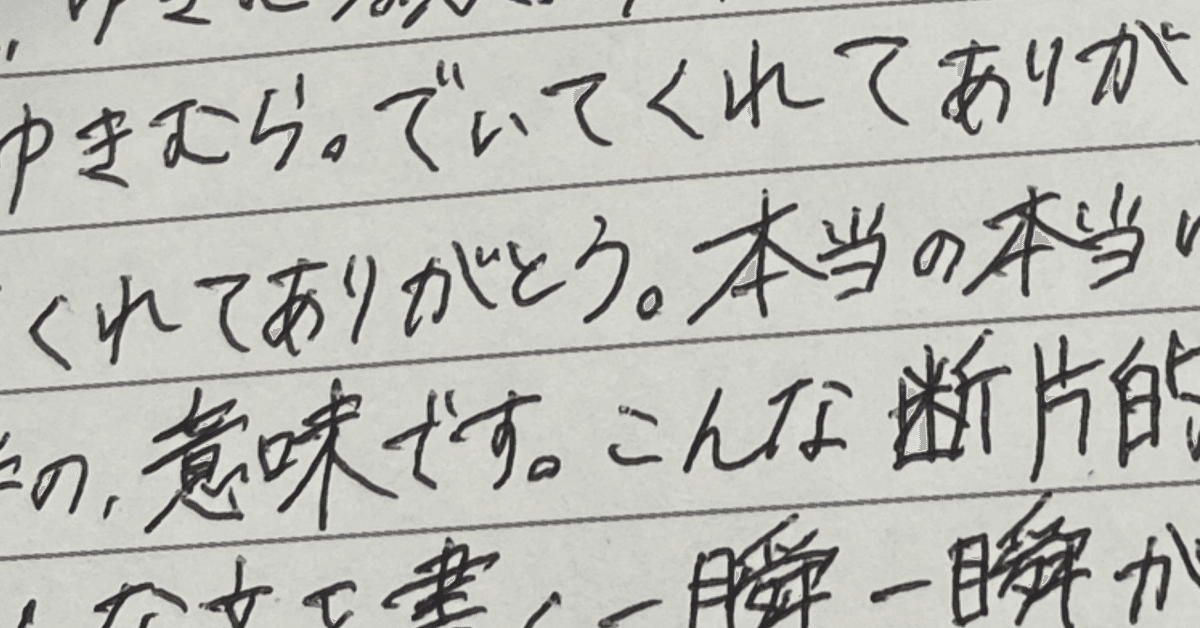 ゆきむら。でいてくれてありが
くれてありがとう。本当の本当
の、意味です。こんな断片的
な文で書く一瞬一瞬が